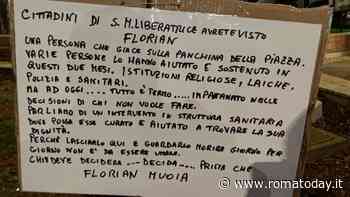 CITTADINI DI S.M. LIBERATRICE AVRETE VISTO
FLORIAN
UNA PERSONA CHE GIACE SULLA PANCHINA DELLA PIAZZA.
VARIE PERSONE LO HANNO AIUTATO E SOSTENUTO IN
QUESTI DUE MESI. ISTITUZIONI RELIGIOSE, LAICHE,
POLIZIA E SANITARI.
MA AD OGGI.... TUTTO È FERMO.... NELLE
DECISIONI DI CHI NON VUOLE FARE.
PARLIAMO DI UN INTERVENTO IN STRUTTURA SANITARIA
DOVE POSSA ESSERE CURATO E AIUTATO A TROVARE LA SUA
DIGNITÀ.
PERCHÈ LASCIARLO QUI E GUARDARLO MORIRE GIORNO PER
GIORNO NON È DA ESSERE UMANI.
CHI DEVE DECIDERE .... DECIDA .... PRIMA CHE
FLORIAN MUOIA
www.romatoday.it